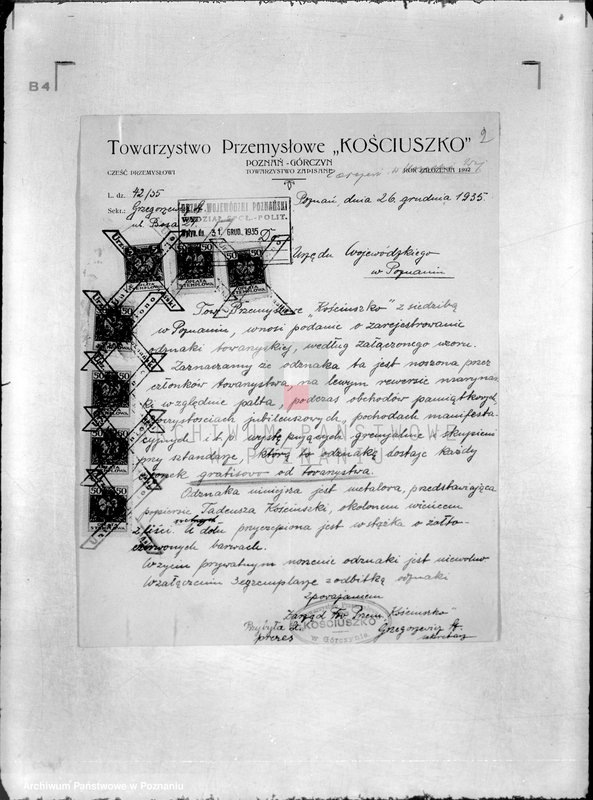 B4
Towarzystwo Przemysłowe „KOŚCIUSZKO"
2
POZNAŃ-GÓRCZYN
CZEŚĆ PRZEMYSŁOWI
TOWARZYSTWO ZAPISANE
ROK ZAŁOŻENIA 1897
L. dz. 42/35
Poznań, dnia 26 grudnia 1935
Sekr.: Grzegorzewicz A
ul. Bosa 21
URZĄD WOJEWÓDZKI POZNAŃSKI
WYDZIAŁ SPOŁ.-POLIT.
Wpłyn. dn. 31. GRUD. 1935
Do
Urzędu Wojewódzkiego
w Poznaniu
Tow. Przemysłowe „Kościuszko" z siedzibą
w Poznaniu, wnosi podanie o zarejestrowanie
odznaki towarzyskiej, według załączonego wzoru.
Zaznaczamy że odznaka ta jest noszona przez
członków towarzystwa, na lewym rewersie marynar
ki względnie palta, podczas obchodów pamiątkowych
uroczystościach jubileuszowych, pochodach manifesta
cyjnych i t. p. występujących gremjalnie w skupieniu
przy sztandarze, którą to odznakę dostaje każdy
członek gratisowo od towarzystwa.
Odznaka niniejsza jest metalowa, przedstawiająca
popiersie Tadeusza Kościuszki, okolonem wieńcem
z liści. U dołu przyczepiona jest wstążka o żółto-
czerwonych barwach.
W życiu prywatnym noszenie odznaki jest niewolno
W załączeniu 3 egzemplarze z odbitką odznaki
z poważaniem
Zarząd Tow. Przem. „Kościuszko"
Przybyła L.
prezes
KOŚCIUSZKO
w Górczynie
Grzegorzewicz A.
sekretarz
ARCHIWUM PAŃSTWOWE
W POZNANIU
Archiwum Państwowe w Poznaniu